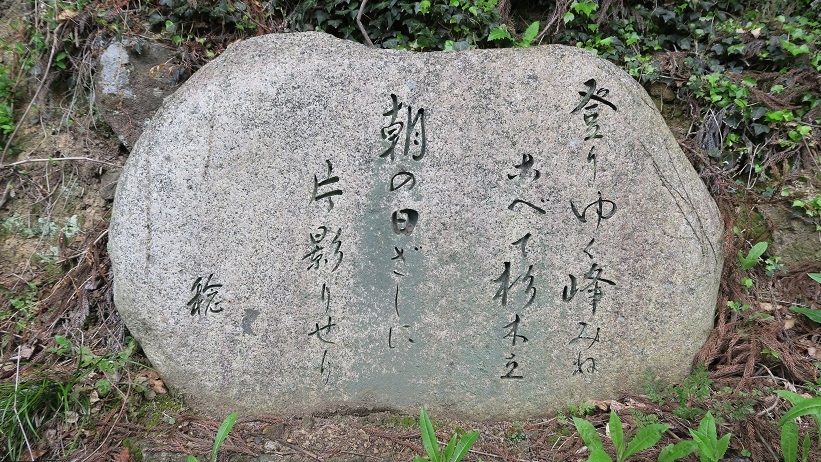 登りゆく峰みね
なべて杉木立
朝の日ざしに
片影りせり
穂